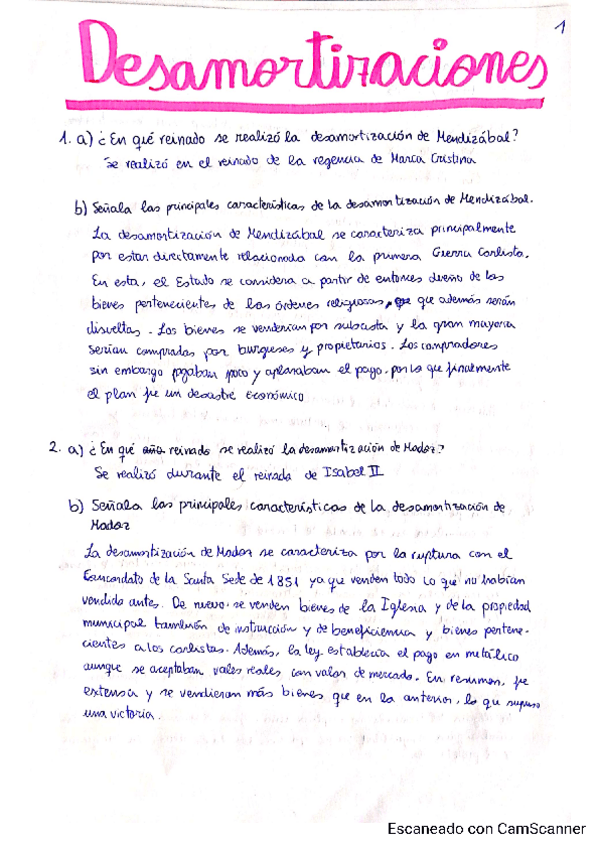 1
Desamortizaciones
1. a) ¿En qué reinado se realizó la desamortización de Mendizábal?
Se realizó en el reinado de la regencia de María Cristina
b) Señala las principales características de la desamortización de Mendizábal.
La desamortización de Mendizábal se caracteriza principalmente
por estar directamente relacionada con la primera Guerra Carlista.
En esta, el Estado se considera a partir de entonces dueño de los
bienes pertenecientes de las órdenes religiosas, que además serán
disueltas. Los bienes se venderían por subasta y la gran mayoría
serían compradas por burgueses y propietarios. Los compradores
sin embargo pagaban poco y aplanaban el pago. por lo que finalmente
el plan fue un desastre económico
2. a) ¿En qué año reinado se realizó la desamortización de Madoz?
Se realizó durante el reinado de Isabel II
b) Señala las principales características de la desamortización de
Madoz
La desamortización de Madoz se caracteriza por la ruptura con el
Concordato de la Santa Sede de 1851 ya que venden todo lo que no habían
vendido antes. De nuevo se venden bienes de la Iglesia y de la propiedad
municipal también de instrucción y de beneficiencia y bienes pertene-
cientes a los carlistas. Además, la ley establecía el pago en metálico
aunque se aceptaban vales reales con valor de mercado. En resumen, fue
extensa y se vendieron más bienes que en la anterior, lo que supuso
una victoria.
Escaneado con CamScanner